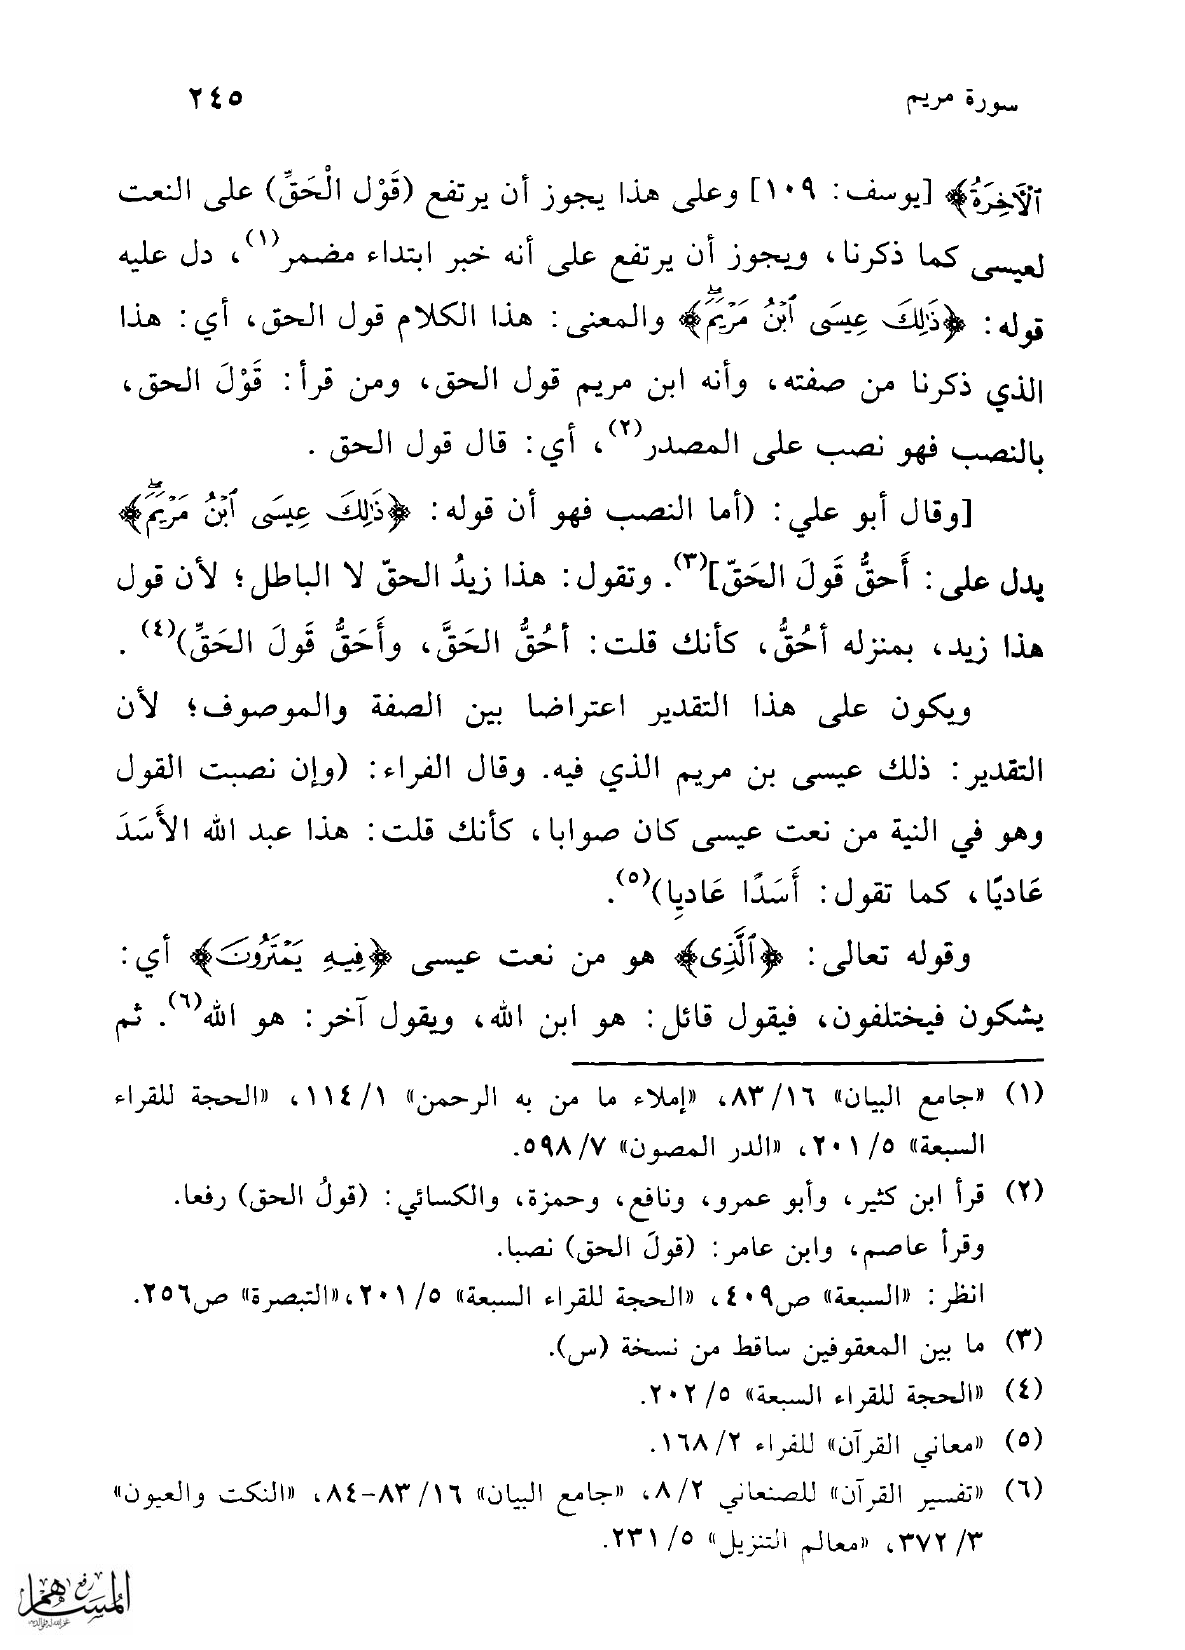 سورة مريم ٢٤٥
ٱلْأَخِرَةُ﴾ [يوسف: ١٠٩] وعلى هذا يجوز أن يرتفع (قَوْل الْحَقِّ) على النعت
لعيسى كما ذكرنا، ويجوز أن يرتفع على أنه خبر ابتداء مضمر(١)، دل عليه
قوله: ﴿ذَٰلِكَ عِيسَى ٱبْنُ مَرْيَمَۖ﴾ والمعنى: هذا الكلام قول الحق، أي: هذا
الذي ذكرنا من صفته، وأنه ابن مريم قول الحق، ومن قرأ: قَوْلَ الحق،
بالنصب فهو نصب على المصدر(٢)، أي: قال قول الحق .
[وقال أبو علي: (أما النصب فهو أن قوله: ﴿ذَٰلِكَ عِيسَى ٱبْنُ مَرْيَمَۖ﴾
يدل على: أَحقُّ قَولَ الحَقّ](٣). وتقول: هذا زيدُ الحقّ لا الباطل؛ لأن قول
هذا زيد، بمنزله أحُقُّ، كأنك قلت: أحُقُّ الحَقَّ، وأَحَقُّ قَولَ الحَقِّ)(٤) .
ويكون على هذا التقدير اعتراضا بين الصفة والموصوف؛ لأن
التقدير: ذلك عيسى بن مريم الذي فيه. وقال الفراء: (وإن نصبت القول
وهو في النية من نعت عيسى كان صوابا، كأنك قلت: هذا عبد الله الأَسَدَ
عَاديًا، كما تقول: أَسَدًا عَادِيا)(٥).
وقوله تعالى: ﴿ٱلَّذِى﴾ هو من نعت عيسى ﴿فِيهِ يَمْتَرُونَ﴾ أي:
يشكون فيختلفون، فيقول قائل: هو ابن الله، ويقول آخر: هو الله(٦). ثم
(١) «جامع البيان» ١٦/ ٨٣، «إملاء ما من به الرحمن» ١/ ١١٤، «الحجة للقراء
السبعة» ٥/ ٢٠١، «الدر المصون» ٧/ ٥٩٨.
(٢) قرأ ابن كثير، وأبو عمرو، ونافع، وحمزة، والكسائي: (قولُ الحق) رفعا.
وقرأ عاصم، وابن عامر: (قولَ الحق) نصبا.
انظر: «السبعة» ص٤٠٩، «الحجة للقراء السبعة» ٥/ ٢٠١،«التبصرة» ص٢٥٦.
(٣) ما بين المعقوفين ساقط من نسخة (س).
(٤) «الحجة للقراء السبعة» ٥/ ٢٠٢.
(٥) «معاني القرآن» للفراء ٢/ ١٦٨.
(٦) «تفسير القرآن» للصنعاني ٢/ ٨، «جامع البيان» ١٦/ ٨٣-٨٤، «النكت والعيون»
٣/ ٣٧٢، «معالم التنزيل» ٥/ ٢٣١.